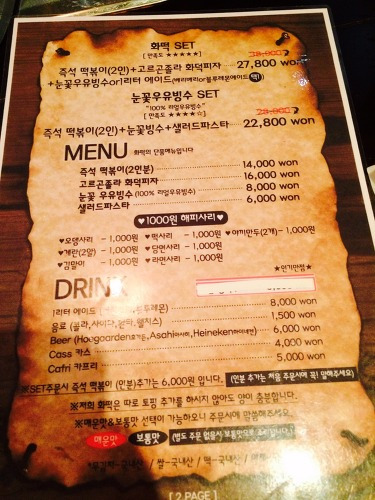 화떡 SET
[ 만족도 ★★★★★ ]
즉석 떡볶이(2인)+고르곤졸라 화덕피자 27,800 won
+눈꽃우유빙수or1리터 에이드(베리베리or블루레몬에이드 택1)
눈꽃우유빙수 SET
"100% 리얼우유빙수"
[ 만족도 ★★★★☆ ]
즉석 떡볶이(2인)+눈꽃빙수+샐러드파스타 22,800 won
MENU 화떡의 단품메뉴입니다
즉석 떡볶이(2인분) 14,000 won
고르곤졸라 화덕피자 16,000 won
눈꽃 우유빙수(100% 리얼우유빙수) 8,000 won
샐러드파스타 6,000 won
♥1000원 해피사리♥
♥오뎅사리 - 1,000원 ♥떡사리 - 1,000원 ♥야끼만두(2개)-1,000원
♥계란(2알) - 1,000원 ♥당면사리 - 1,000원
♥김말이 - 1,000원 ♥라면사리 - 1,000원
★인기만점★
DRINK
1리터 에이드 8,000 won
음료 (콜라,사이다,환타,웰치스) 1,500 won
Beer (Hoegaarden호가든,Asahi아사히,Heineken하이네켄) 6,000 won
Cass 카스 4,000 won
Cafri 카프리 5,000 won
※SET주문시 즉석 떡볶이 (인분)추가는 6,000원 입니다. (인분 추가는 처음 주문시에 꼭! 말해주세요)
※저희 화떡은 따로 토핑 추가를 하시지 않아도 양이 충분합니다.
※매운맛&보통맛 선택이 가능하오니 주문시에 말씀해주세요.
매운맛 보통맛 (별도 주문 없을시 보통맛으로
국내산 / 쌀-국내산 / 떡-국내산 /
[ 2 PAGE ]